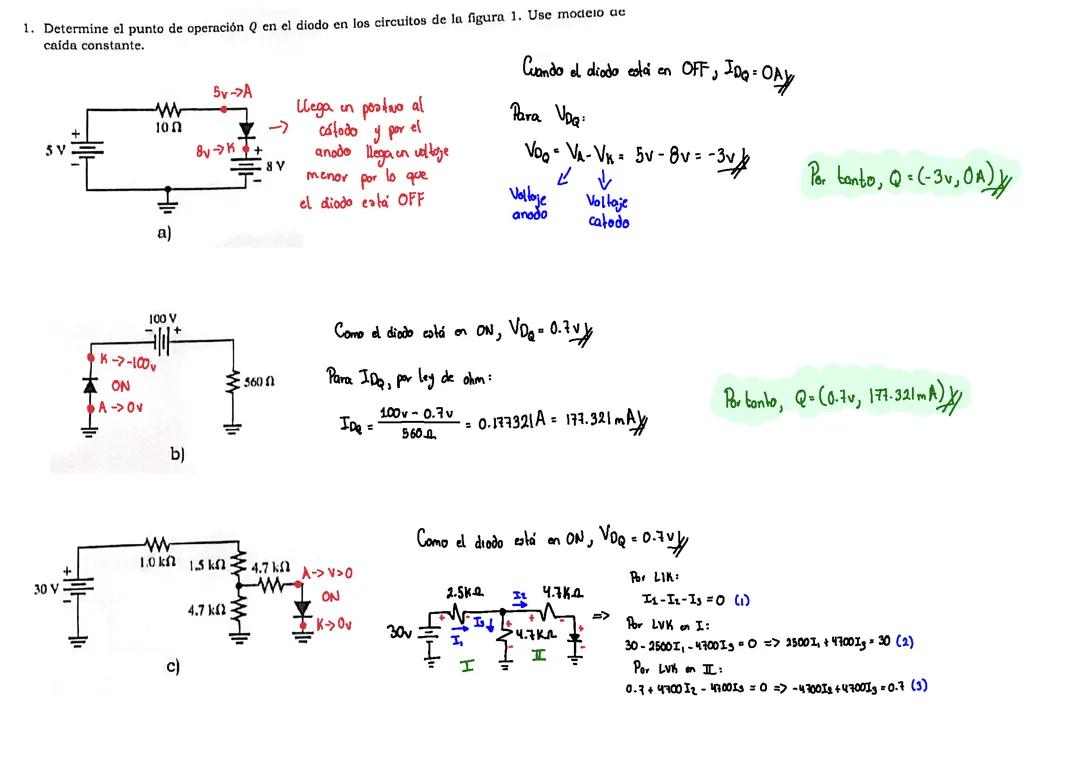 1. Determine el punto de operación Q en el diodo en los circuitos de la figura 1. Use modelo de
caída constante.
5v->A
10 Ω
5 V
+
-
8v->K
+
8 V
-
a)
->
Llega un positivo al
cátodo y por el
anodo llega un voltaje
menor por lo que
el diodo está OFF
Cuando el diodo está en OFF, IDQ = 0A
Para VDQ:
VDQ = VA - VK = 5v - 8v = -3v
Voltaje
anodo
Voltaje
catodo
Por tanto, Q = (-3v, 0A)
100 V
- +
K->-100v
ON
A->0v
560 Ω
b)
Como el diodo está en ON, VDQ = 0.7v
Para IDQ, por ley de ohm:
IDQ = 100v - 0.7v / 560Ω = 0.177321A = 177.321mA
Por tanto, Q = (0.7v, 177.321mA)
30 V
+
-
1.0 kΩ
1.5 kΩ
4.7 kΩ
4.7 kΩ
A->V>0
ON
K->0v
c)
Como el diodo está en ON, VDQ = 0.7v
30v
2.5KΩ
I2
4.7KΩ
I1
I3
4.7KΩ
I
II
=>
Por LIK:
I1-I2-I3=0 (1)
Por LVK en I:
30-2500I1-4700I3=0 => 2500I1+4700I3=30 (2)
Por LVK en II:
0.7+4700I2-4700I3=0 => -4700I2+4700I3=0.7 (3)